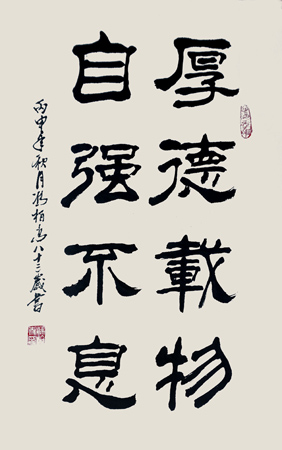 厚德載物
自强不息
丙申年秋月杨柏惠八十三歲書